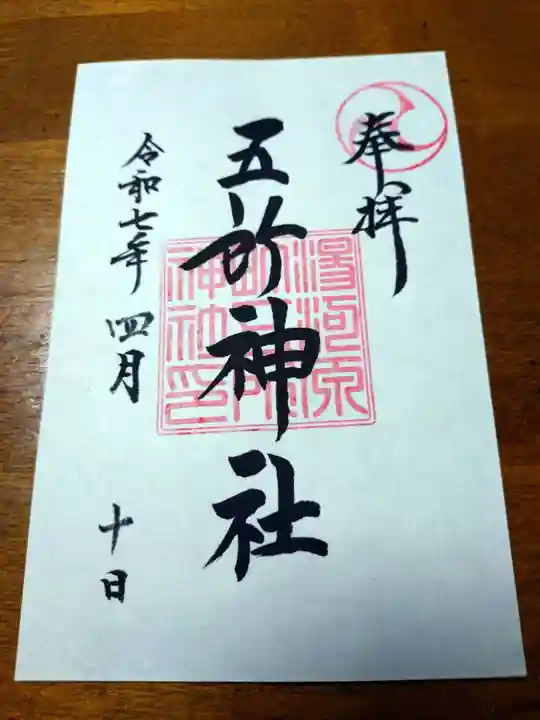 奉拝
湯河原
五所
神社印
五所神社
令和七年 四月 十日